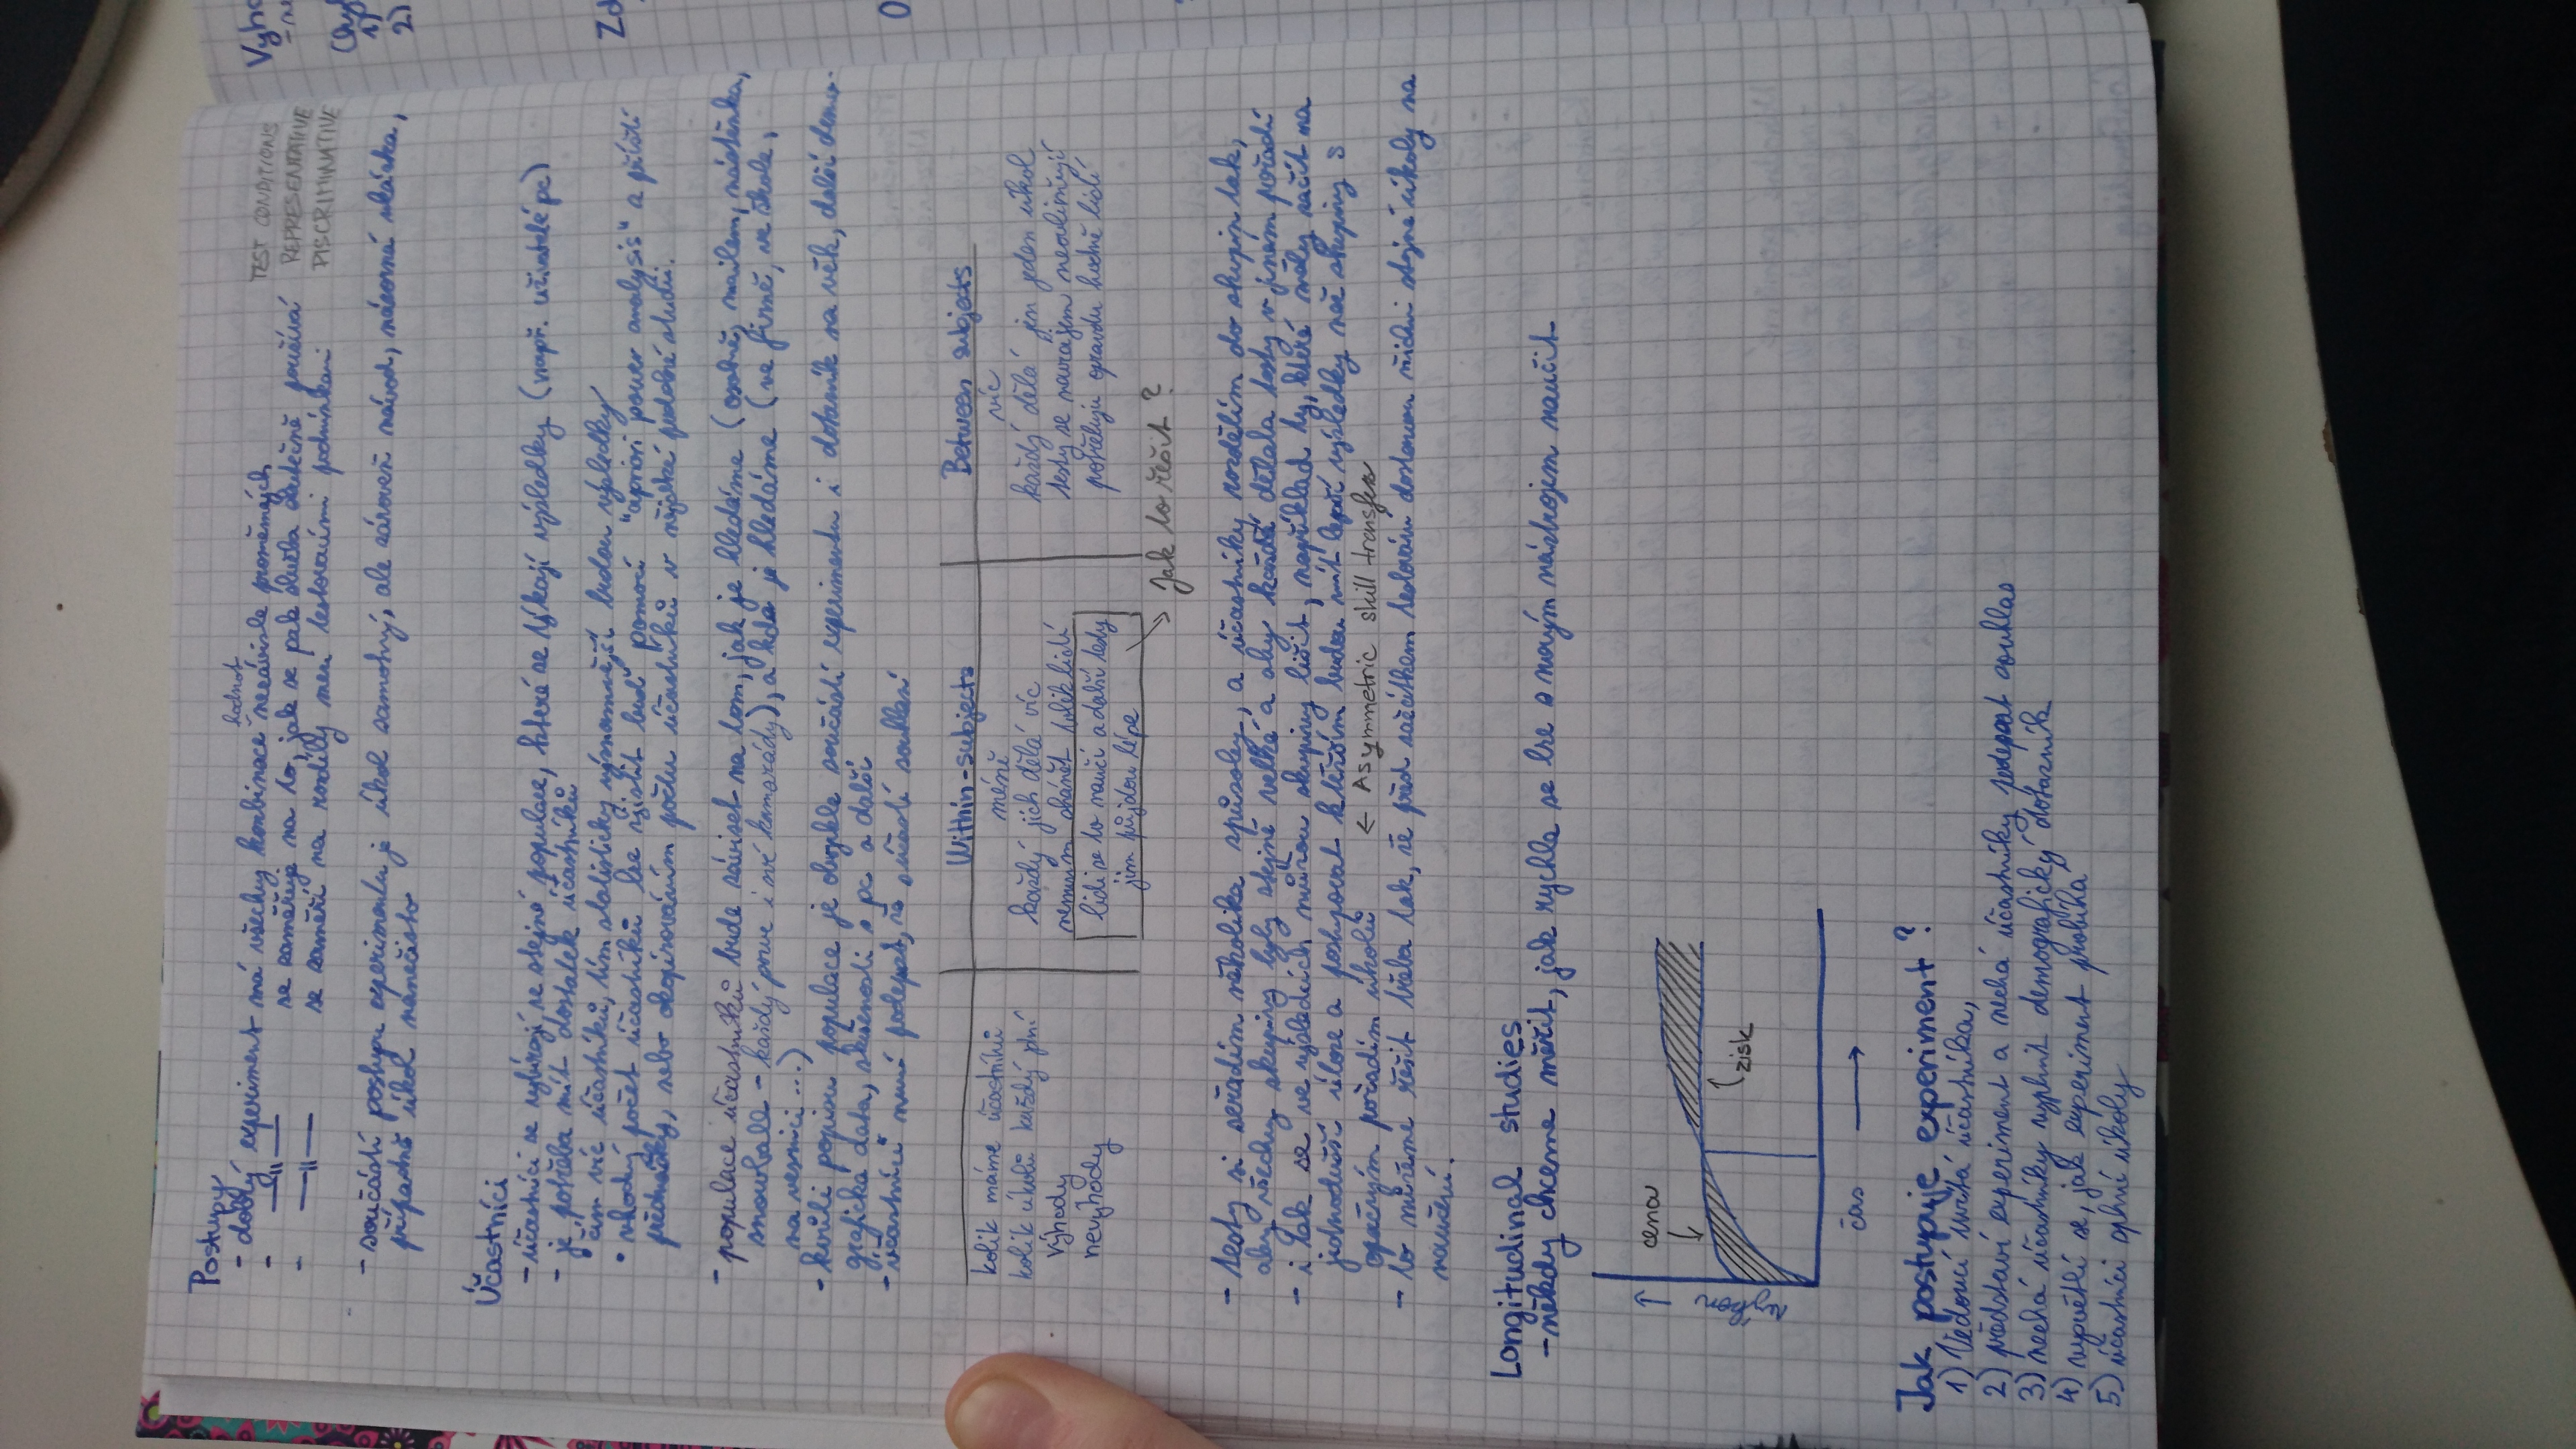 Postupy
hodnot
- dobrý experiment má všechny kombinace nezávisle proměnných TEST CONDITIONS
- —"— se zaměřuje na to, jak se pak služba skutečně používá REPRESENTATIVE
- —"— se zaměří na rozdíly mezi testovacími podmínkami DISCRIMINATIVE
- součástí postupu experimentu je úkol samotný, ale zároveň návod, názorná ukázka,
případně úkol nanečisto
Účastníci
- účastníci se vybírají ze stejné populace, které se týkají výsledky (např. uživatelé pc)
- je potřeba mít dostatek účastníků
• čím víc účastníků, tím statisticky významnější budou výsledky
• vhodný počet účastníků lze zjistit buď pomocí "apriori power analysis" z příští
přednášky, nebo okopírováním počtu účastníků v nějaké podobné studii.
- populace účastníků bude záviset na tom, jak je hledáme (osobně, mailem, nástěnka,
snowball - každý pozve i své kamarády), a kde je hledáme (ve firmě, ve škole,
na vesnici ...)
- kvůli popisu populace je obvykle součástí experimentu i dotazník na věk, další demo-
grafická data, zkušenosti s pc a další
- účastníci musí podepsat, že s účastí souhlasí
Within-subjects Between subjects
kolik máme účastníků méně víc
kolik úkolů každý plní každý jich dělá víc každý dělá jen jeden úkol
výhody nemusím shánět tolik lidí testy se navzájem neovlivňují
nevýhody lidi se to naučí a další testy potřebuju opravdu hodně lidí
jim půjdou lépe
Jak to řešit?
- testy si seřadím několika způsoby, a účastníky rozdělím do skupin tak,
aby všechny skupiny byly stejně velké a aby každá dělala testy v jiném pořadí
- i tak se ve výsledcích můžou skupiny lišit, například ty, které měly začít na
jednodušší úloze a postupovat k těžším budou mít lepší výsledky než skupiny s
opačným pořadím úkolů ← Asymmetric skill transfer
- to můžeme řešit třeba tak, že před začátkem testování dostanou všichni stejné úkoly na
naučení.
Longitudinal studies
- někdy chceme měřit, jak rychle se lze s novým nástrojem naučit
cena
výkon →
zisk
čas →
Jak postupuje experiment?
1) Vedoucí uvítá účastníka,
2) představí experiment a nechá účastníky podepsat souhlas
3) nechá účastníky vyplnit demografický dotazník
4) vysvětlí se, jak experiment probíhá
5) účastníci splní úkoly
Zd
1)
2)
O